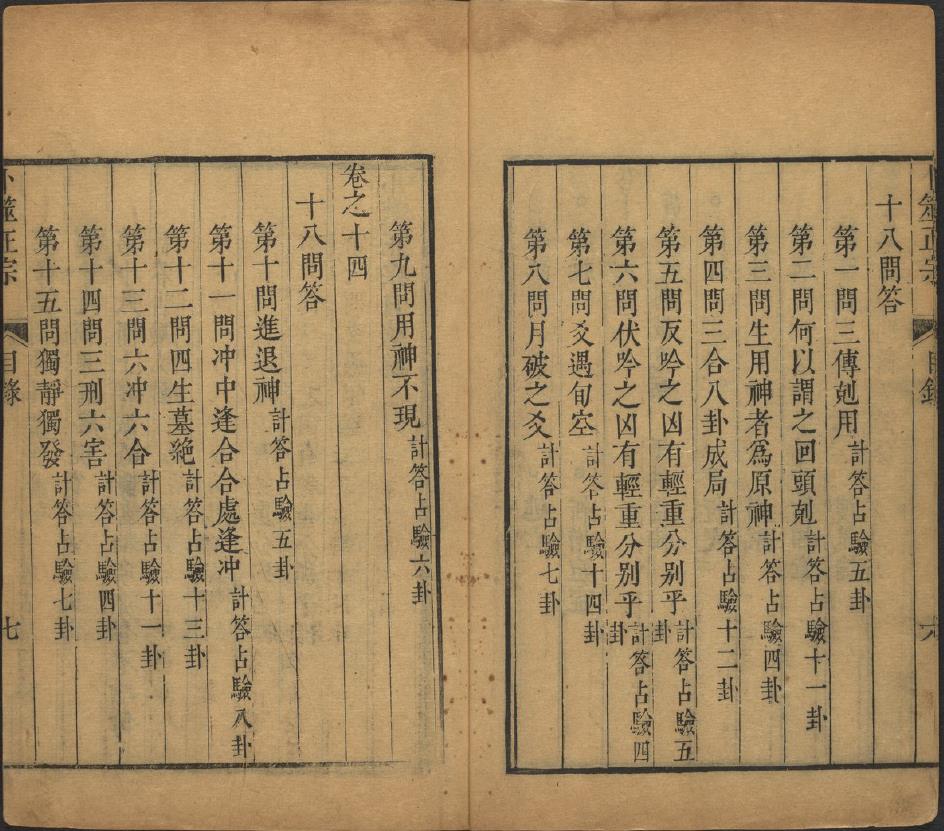 卜筮正宗
目錄
六
十八問答
第一問三傳剋用計答占驗五卦
第二問何以謂之回頭剋計答占驗十一卦
第三問生用神者爲原神計答占驗四卦
第四問三合八卦成局計答占驗十二卦
第五問反吟之凶有輕重分别乎計答占驗五卦
第六問伏吟之凶有輕重分别乎計答占驗四卦
第七問爻遇旬空計答占驗十四卦
第八問月破之爻計答占驗七卦
第九問用神不現計答占驗六卦
卷之十四
十八問答
第十問進退神計答占驗五卦
第十一問冲中逢合合處逢冲計答占驗八卦
第十二問四生墓絶計答占驗十三卦
第十三問六冲六合計答占驗十一卦
第十四問三刑六害計答占驗四卦
第十五問獨靜獨發計答占驗七卦
卜筮正宗
目錄
七